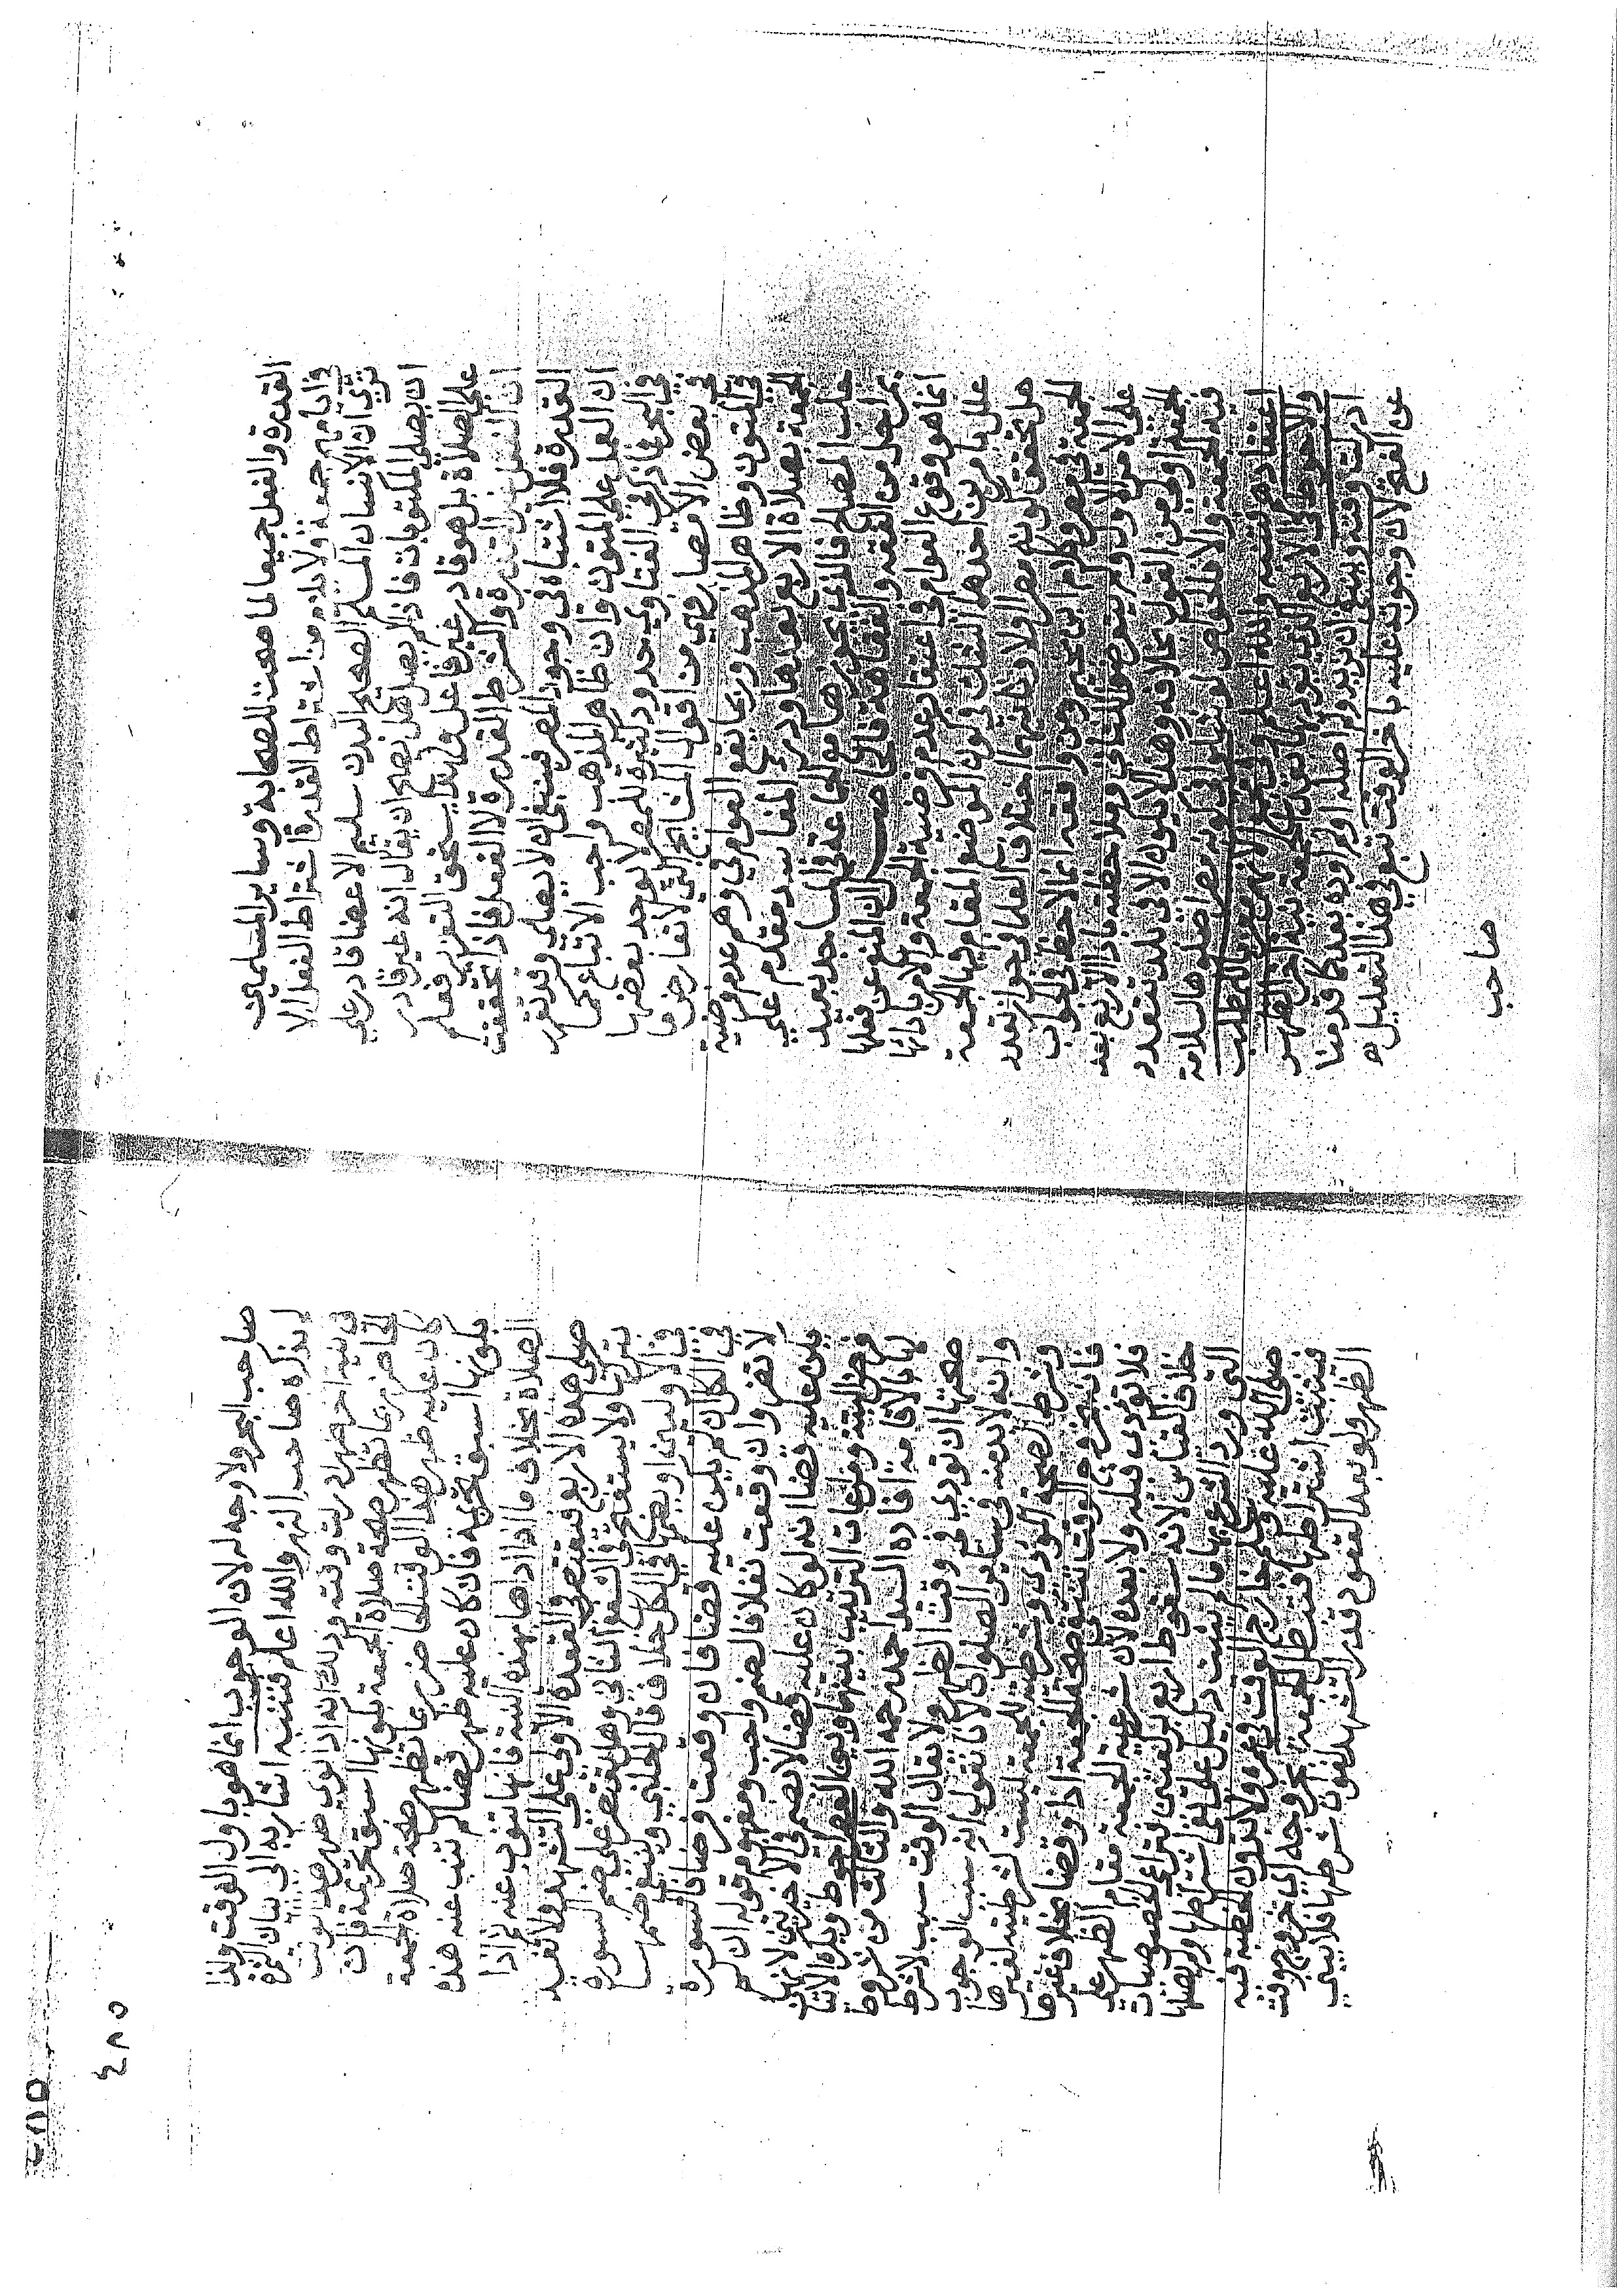 القدرة والفعل جميعا لما صحت للصحابة وساير المسلمين
في ايامهم جمعة ولا يلزم من اشتراط القدرة اشتراط الفعل الا
ترى ان الانسان المسلم الصحيح البدن سليم الاعضا قادر على
ان يصلي المكتوبات فاذا لم يصل هل يصح ان يقال انه غير قادر
على الصلاة بل هو قادر غير فاعل ولهذا يستحق التعزير فعلم
ان الفعل غير القدرة والشرط القدرة لا الفعل فاذا تحققت
القدرة فلا اشتباه في وجود المصر فينبغي ان لا يصلي وقد تقرر
ان العمل على المتون وان ظاهر المذهب واجب الاتباع كما
في البحر فما ذكر في الفتاوي حدود كثيرة للمصر لا يوجد بعضها
في بعض الامصار فهي من اقوال المشايخ التي لا تعارض ما
في المتون وظاهر المذهب وربما يقع العوام في وهم عدم فرضية
الجمعة بصلاة الاربع بعدها ودرء المفاسد مقدم على
جلب المصالح فالذي يجوزها مع الجماعة في المساجد بعيد
بمراحل من الفقه والفقاهة فالحاصل ان المنع عن فعلها
انما هو وقوع العوام في اعتقاد عدم فرضية الجمعة والامر بادائها
علل بامرين احدهما الشك في كون الموضع المقام فيها الجمعة
هل تحقق كونه مصرا او لا وثانيهما اختلاف العلما في جواز تعدد
الجمعة في مصر وكلام ابن نجيم ومن وافقه انما لاحظ في الجواب
على الامر الاول ولم يتعرض للثاني وملاحظته باداء الاربع بعد
الجمعة اولى من القول بخلافه وهذا لا يكون الا في بلد يتعدد
فيه الجمعة والاخلاص لو شكوا في كونه مصرا صلوها لسلامة
اعتقادهم فتنبه والله اعلم وفي النهر
والاحوط في الاربع الذي تؤدى بعد الجمعة بنية اخر الظهر
ادركت وقته وينبغي ان يزيد ولم اصله او لم اؤده بعد كما قدمنا
عن الفتح لان وجوبه عليه باخر الوقت تبع في هذا التعليل
صاحب
صاحب البحر ولا وجه له لان الوجوب انما هو باول الوقت ولذا
لم يذكره صاحب النهر والله اعلم فتنبه اشار به الى بيان الثمرة
في نية اخر ظهر ادركت وقته وذلك انه اذا نوى ظهر هذا الوقت
الحاضر ربما تظهر صحة صلاة الجمعة بكونها اسبق تحريمة فان
كان عليه ظهر هذا الوقت الحاضر ربما تظهر صحة صلاة الجمعة
بكونها اسبق تحريمة فان كان عليه ظهر قضا لم تنب عنه هذه
الصلاة بخلاف ما اذا اداها بهذه النية فانها تنوب عنه ثم اذا
صلى هذه الاربع فيقتصر في القعدة الاولى على التشهد ولا تفسد
بتركها ولا يستفتح في الشفع الثاني وهل يقتصر على ضم السورة
في الاوليين او يضمها في الكل خلاف قال الحلبي وينبغي ضمها
في الكل ان لم يكن عليه قضا فان وقعت فرضا فالسورة
لا تضر وان وقعت نفلا فالضم واجب ومفهوم قوله ان لم
يكن عليه قضا انه لو كان عليه قضا لا يضم في الاخريين لانها
فرض البتة ومراعات الترتيب بينها وبين العصر احوط ويكره الاتيان
لها بالاقامة افاده السيد احمد رحمه الله والثالث من شروط
صحتها ان تؤدى في وقت الظهر ولا يقال الوقت سبب لا شرط
وانه لا بد منه في ساير الصلوات لانا نقول انه سبب الوجوب
وشرط الصحة المؤدى وشرطيته للجمعة ليست كشرطيته لغيرها
فانه بخروج الوقت لا يبقى صحة للجمعة اداء وقضا بخلاف غيرها
فلا تؤدى قبله ولا بعده لان شرعية الجمعة مقام الظهر على
خلاف القياس لانه سقوط اربع بركعتين فتراعى الخصوصيات
التي ورد الشرع بها ما لم يثبت دليل على نفي اشتراطها ولم يصلها
صلى الله عليه وسلم خارج الوقت في عمره ولا بدون الخطبة فيه
فتثبت اشتراطهما فتبطل الجمعة بخروجه اي خروج وقت
الظهر ولو بعد القعود قدر التشهد لفوات شرطها فلا يبني
٤٨٥